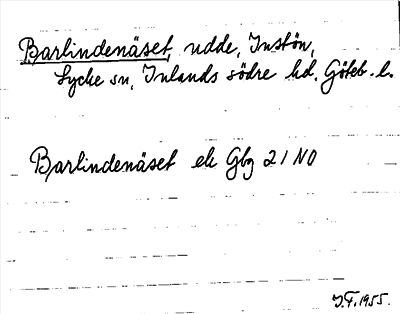 Barlindenäset, udde, Instön,
Lycke sn, Inlands södre hd, Göteb. l.
Barlindenäset ek Gbg 21 NO
J.F. 1955.